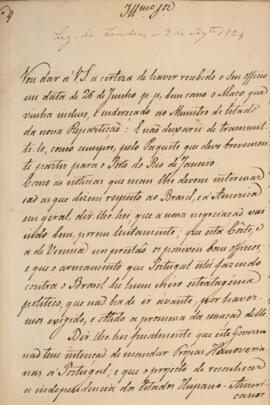 Nº 4
Illmo Sor
Leg. de Londres — 3 de Agto 1824
Vou dar á V.S. a certeza de haver recebido o seu officio
em data de 26 de Junho p. p. bem como o Maço que
vinha incluso, e endereçado ao Ministro de Estado
da nossa Repartição: E não deixarei de transmit-
ti-lo, como cumpre, pelo Paquete que deve brevemen-
te partir para o Porto do Rio de Janeiro.
Como as noticias que mais lhe devem interessar
são as que dizem respeito ao Brasil, e á America
em geral, dir-lhe-hei que a nossa negociação vai
indo bem, porem lentamente, que esta Côrte, e
a de Vienna nos prestão os possiveis bons officios,
e que o armamento que Portugal está fazendo
contra o Brasil he hum mero estratagema
politico, que não ha de ir avante, por haver-
mos exigido, e obtido a promessa da cessação delle
Dir-lhe-hei finalmente que este Governo
não tem intenção de mandar Tropas Hanoveria-
nas á Portugal, e que o projecto de reconhecer
a independencia dos Estados Hispano-Ameri-
canos